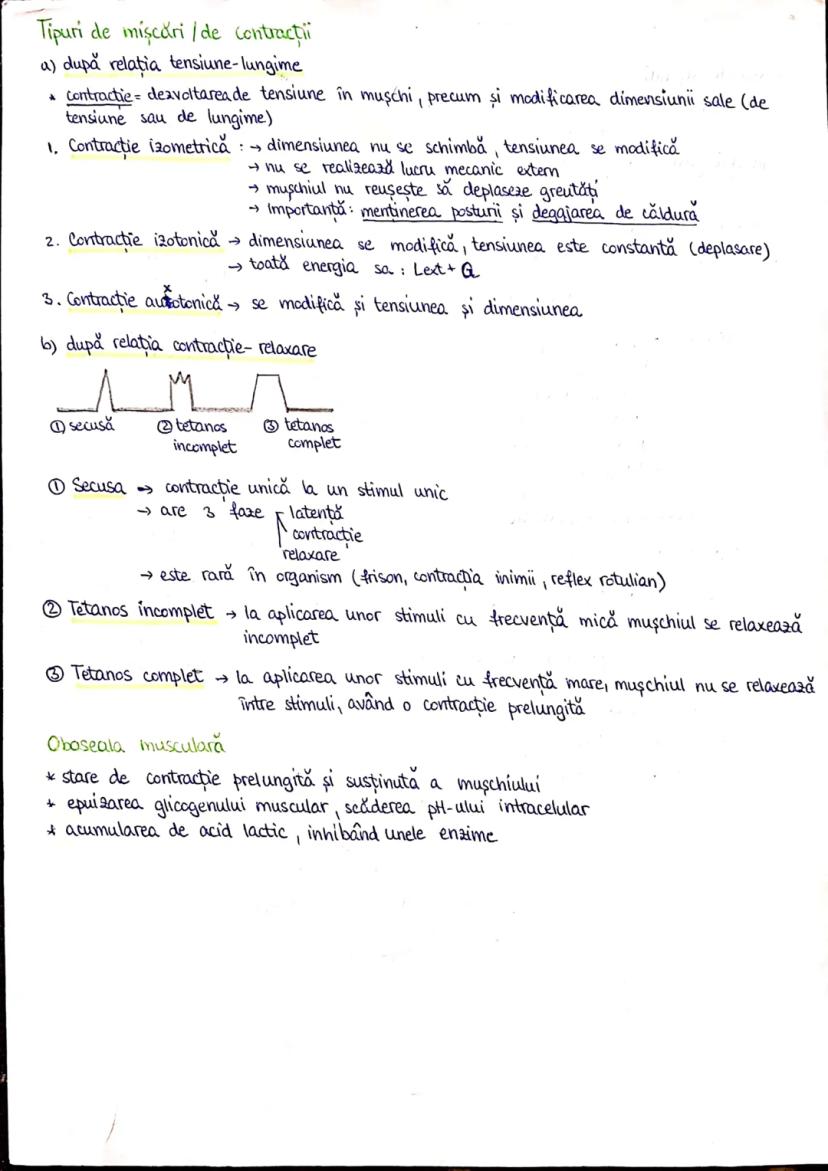 Tipuri de mișcări / de contracții
a) după relația tensiune-lungime
* contracție = dezvoltarea de tensiune în mușchi, precum și modificarea dimensiunii sale (de
tensiune sau de lungime)
1. Contracție izometrică : → dimensiunea nu se schimbă, tensiunea se modifică
→ nu se realizează lucru mecanic extern
→ mușchiul nu reușește să deplaseze greutăți
→ Importanță: menținerea posturii și degajarea de căldură
2. Contracție izotonică → dimensiunea se modifică, tensiunea este constantă (deplasare)
→ toată energia sa : Lext + Q
3. Contracție auxotonică → se modifică și tensiunea și dimensiunea
b) după relația contracție- relaxare
① secusă ② tetanos ③ tetanos
incomplet complet
① Secusa → contracție unică la un stimul unic
→ are 3 faze latență
contracție
relaxare
→ este rară în organism (frison, contracția inimii, reflex rotulian)
② Tetanos incomplet → la aplicarea unor stimuli cu frecvență mică mușchiul se relaxează
incomplet
③ Tetanos complet → la aplicarea unor stimuli cu frecvență mare, mușchiul nu se relaxează
între stimuli, având o contracție prelungită
Oboseala musculară
* stare de contracție prelungită și susținută a mușchiului
* epuizarea glicogenului muscular, scăderea pH-ului intracelular
* acumularea de acid lactic, inhibând unele enzime